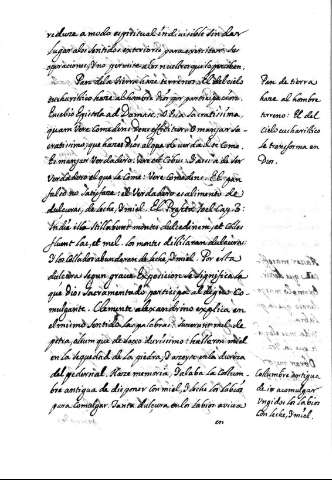 reduze a modo espiritual indivisible sin dar
lugar a los sentidos exteriores para exercitar sus
operaciones, y no permite a los
Pan de la tierra haze terrenos. El del cielo
eucharistico haze al hombre Dios por participacion.
Eusebio Epistola ad Damaso: O Dsa sacratissima,
quam vere comedens Deus efficitur. O manjar sa-
cratissimo, que hazes Dios al que de verdad te come.
Es manjar verdadero: Vere est Cibus. Dará a de ser
verdadero el que lo come: Vere comedens. El pan
falso no satisfaze: el verdadero es alimento de
dulçuras, de leche, y miel. El Profeta Joel Cap. 3:
In die illa stillabunt montes dulcedinem, et colles
fluent lac, et mel. Los montes destilaran dulçuras
y los collados abundaran de leche, y miel. Por esta
dulçura segun grave Exposicion se significa la
que Dios sacramentado participa al digno Co-
mulgante. Clemente Alexandrino explica en
el mismo sentido las palabras: suxerunt mel de
petra, oleum que de saxo durissimo: hallaron miel
en la sequedad de la piedra, y azeyte en la dureza
del pedernal. Haze memoria, y alaba la costum-
bre antigua de disponer con miel, y leche los labios
para comulgar. Tanta dulçura en los labios avia
en
Pan de tierra
haze al hombre
terreno: El del
cielo eucharistico
le transforma en
Dios.
Costumbre antigua
de ir a comulgar
ungidos los labios
con leche, y miel.